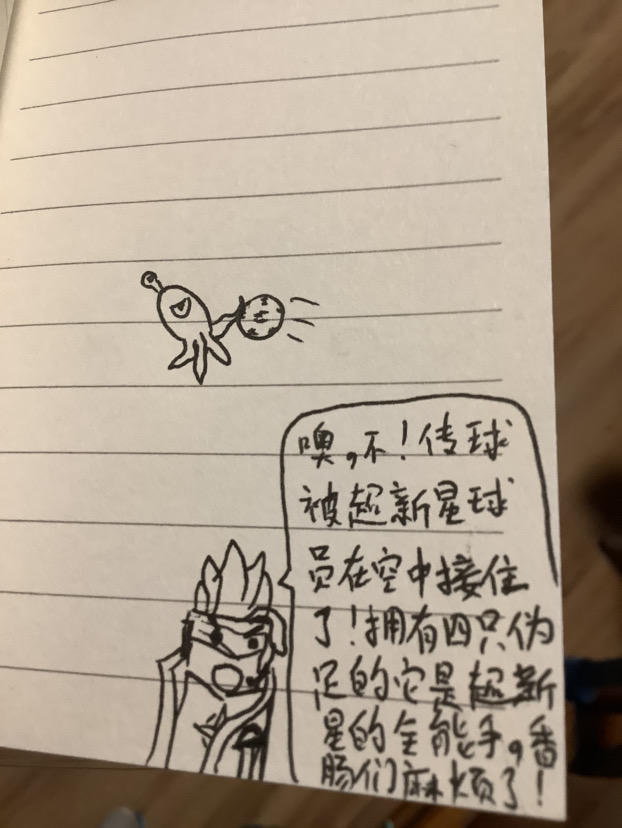 噢,不！传球
被超新星球
员在空中接住
了！拥有四只伪
足的它是超新
星的全能手,香
肠们麻烦了！